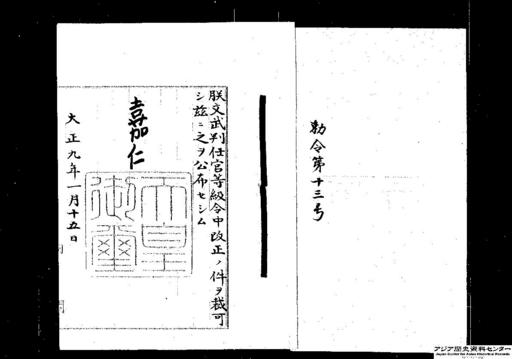 勅令第十三号
朕文武判任官等級令中改正ノ件ヲ裁可
シ茲ニ之ヲ公布セシム
嘉仁
天皇
御璽
大正九年一月十五日
アジア歴史資料センター
Japan Center for Asian Historical Records